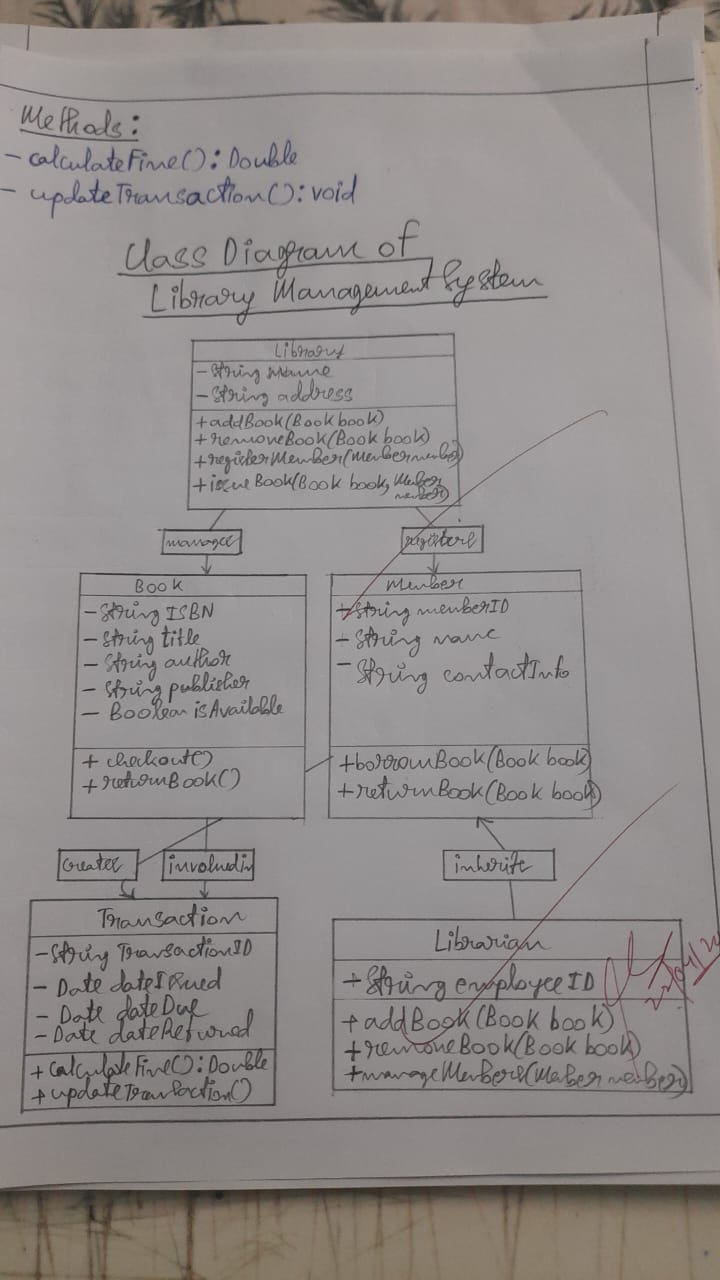 Methods:
- calculateFine(): Double
- updateTransaction(): void
Class Diagram of
Library Management System
Library
- String name
- String address
+ addBook(Book book)
+ removeBook(Book book)
+ registerMember(Member member)
+ issueBook(Book book, Member
member)
manages
registers
Book
- String ISBN
- String title
- String author
- String publisher
- Boolean isAvailable
+ checkout()
+ returnBook()
Member
+ String memberID
- String name
- String contactInfo
+ borrowBook(Book book)
+ returnBook(Book book)
creates
involvedin
inherits
Transaction
- String TransactionID
- Date dateIssued
- Date dateDue
- Date dateReturned
+ calculateFine(): Double
+ updateTransaction()
Librarian
+ String employeeID
+ addBook(Book book)
+ removeBook(Book book)
+ manageMembers(Member member)